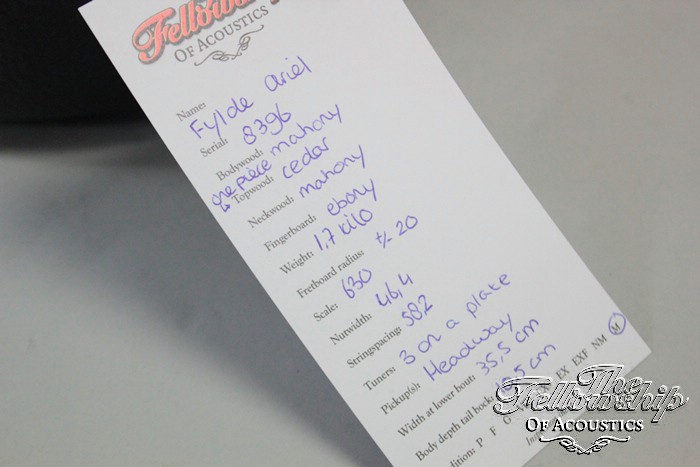 Fellowship
OF ACOUSTICS
Name: Fylde Ariel
Serial: 8396
Bodywood: one piece mahony
Topwood: cedar
Neckwood: mahony
Fingerboard: ebony
Weight: 1,7 kilo
Fretboard radius: +/- 20
Scale: 630
Nutwidth: 46,4
Stringspacing: 582
Tuners: 3 on a plate
Pickup(s): Headway
Width at lower bout: 35,5 cm
Body depth tail bock: cm
dition: P F G EX EXF NM M
The
Fellowship
OF ACOUSTICS